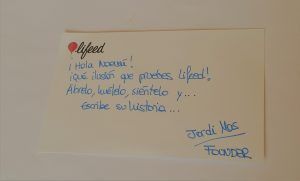 lifeed
¡Hola Noemí!
¡Qué ilusión que pruebes Lifeed!
Ábrelo, huélelo, siéntelo y...
Escribe su historia...
Jordi Mas
FOUNDER